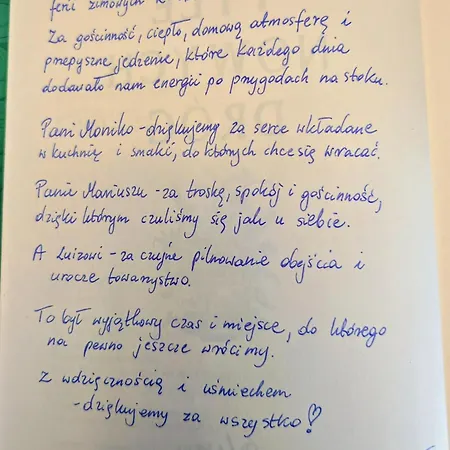 ferii zimowych
Za gościnność, ciepło, domową atmosferę i
przepyszne jedzenie, które każdego dnia
dodawało nam energii po przygodach na stoku.
Pani Moniko - dziękujemy za serce wkładane
w kuchnię i smaki, do których chce się wracać.
Panie Mariuszu - za troskę, spokój i gościnność,
dzięki którym czuliśmy się jak u siebie.
A Luizowi - za czujne pilnowanie obejścia i
urocze towarzystwo.
To był wyjątkowy czas i miejsce, do którego
na pewno jeszcze wrócimy.
Z wdzięcznością i uśmiechem
- dziękujemy za wszystko!